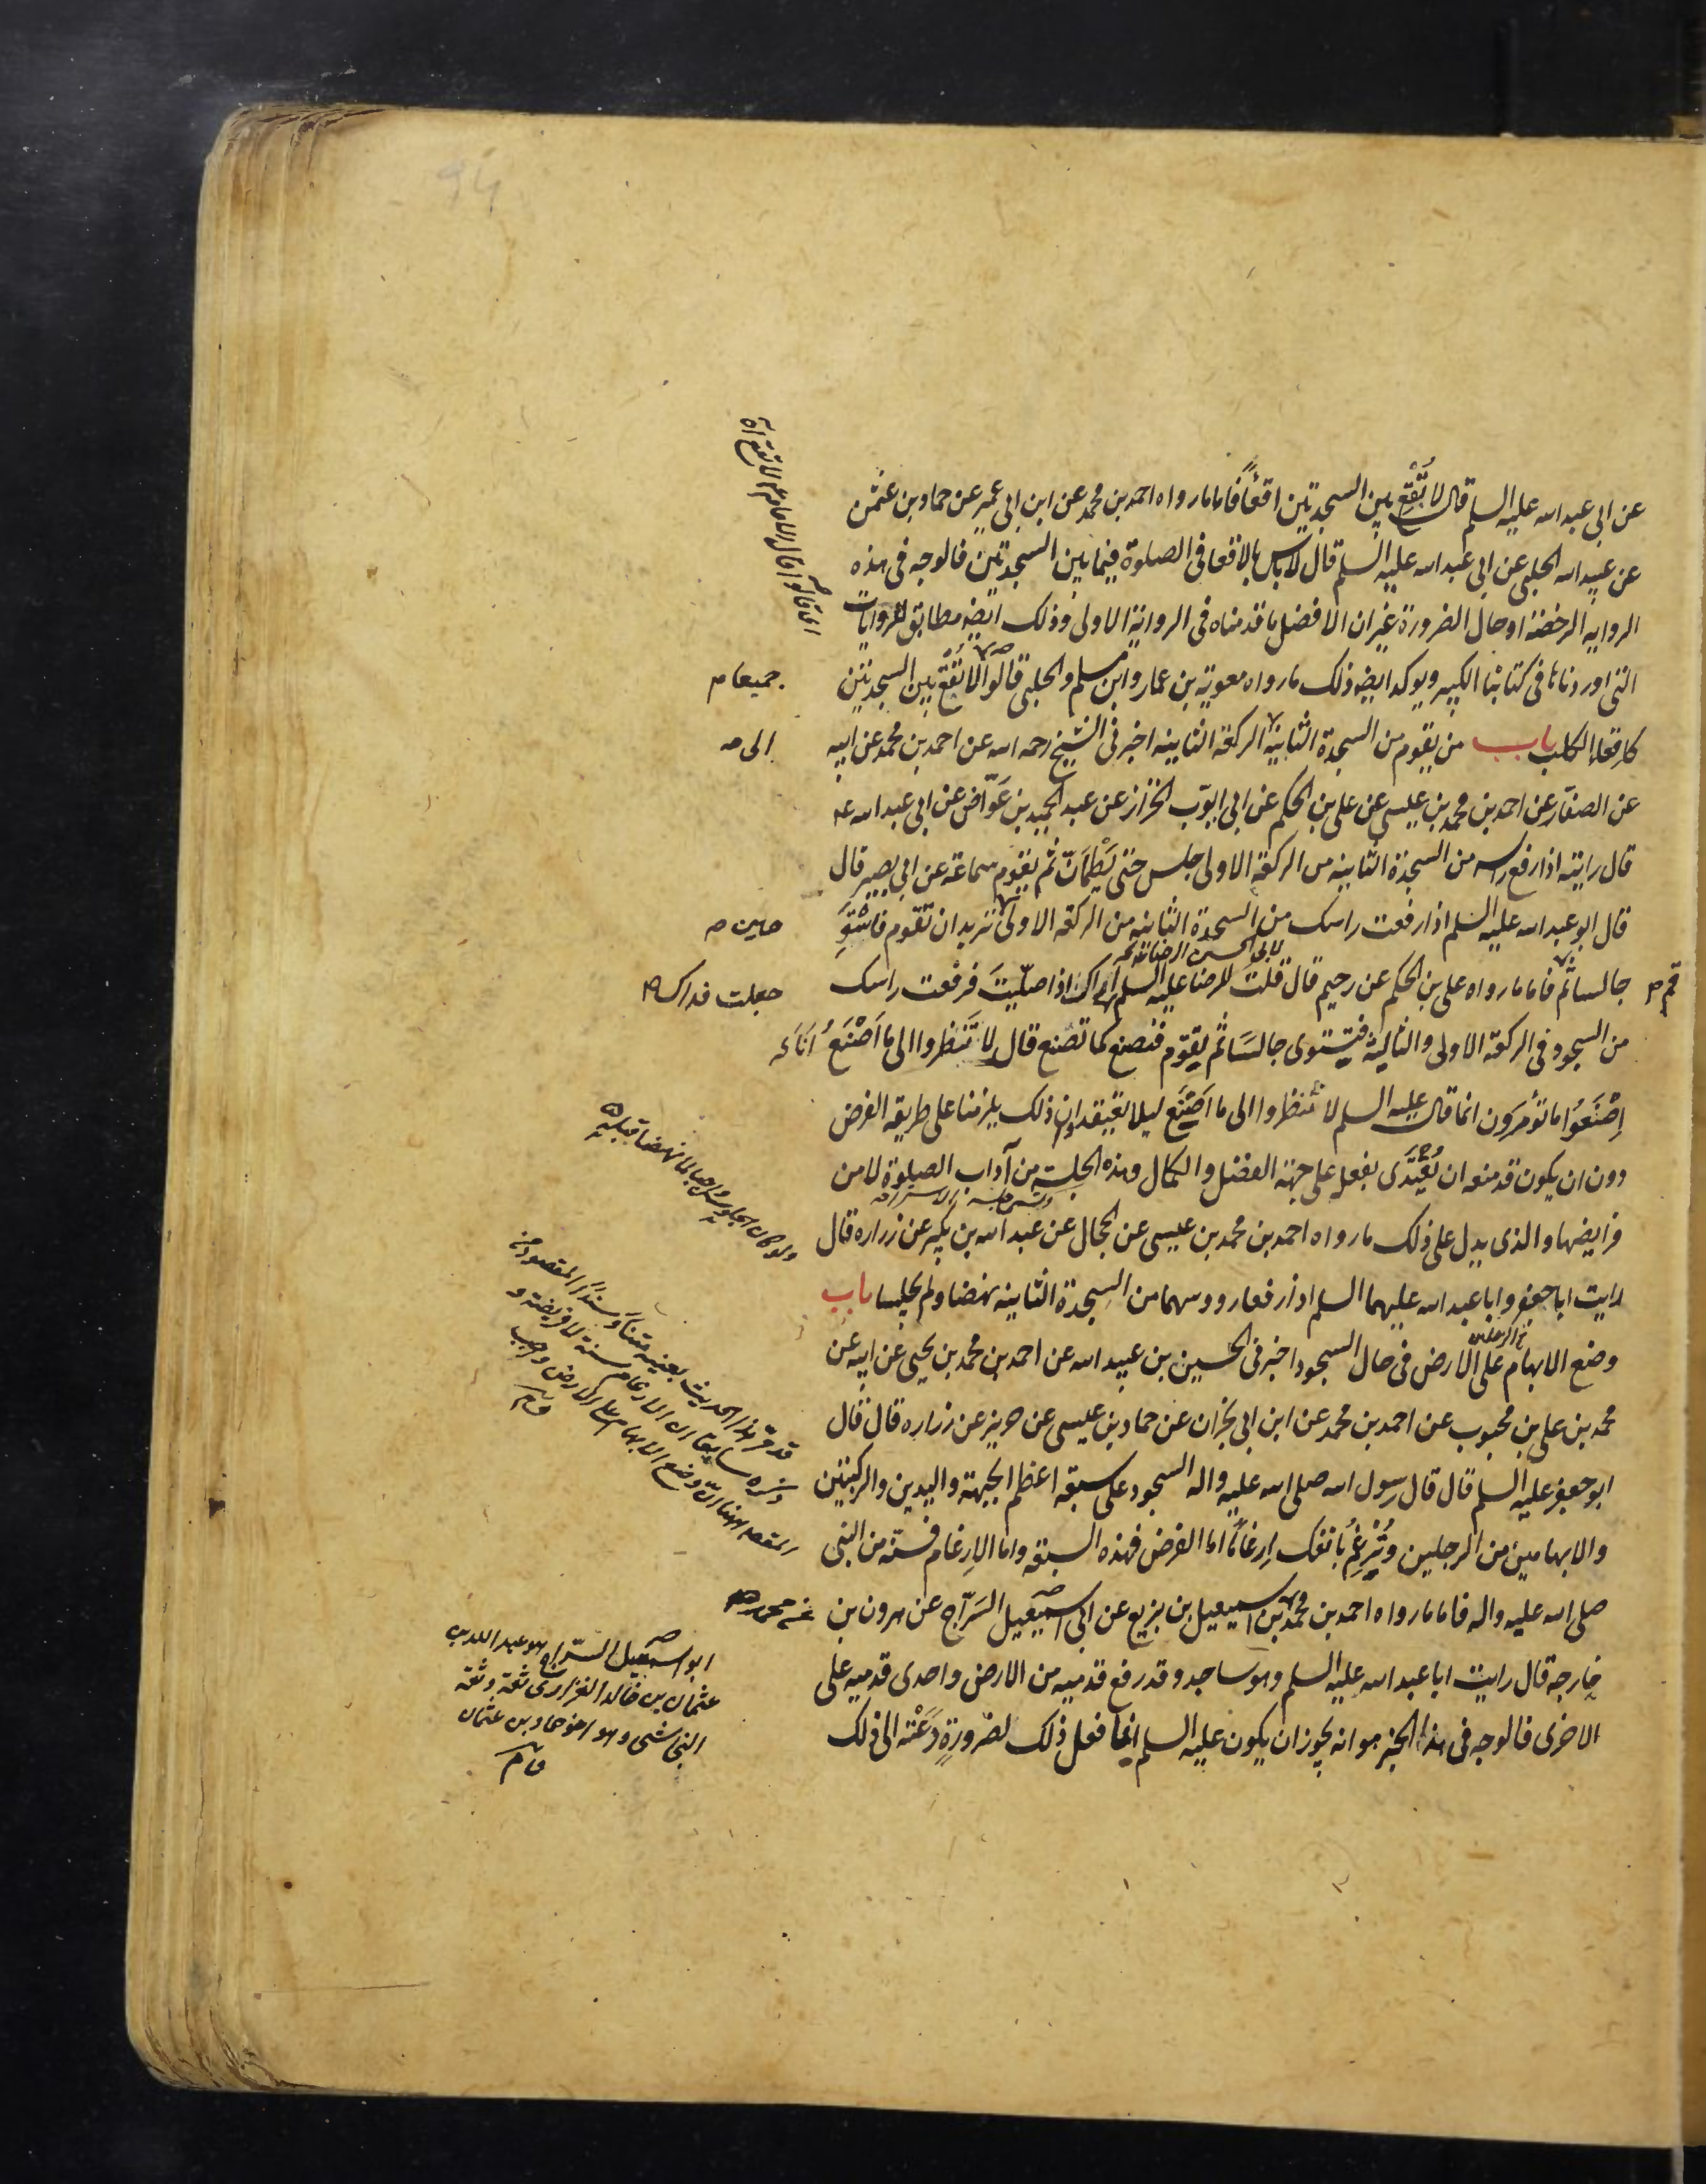 عن ابى عبد الله عليه السلم قال لا تُقْعِ بين السجدتين اقعأً فاما ما رواه احمد بن محمد عن ابن ابى عمير عن حماد بن عثمن
عن عبيد الله الحلبى عن ابى عبد الله عليه السلم قال لا باس بالاقعا فى الصلوة فيما بين السجدتين فالوجه فى هذه
الرواية الرخصة او حال الضرورة غير ان الافضل ما قدمناه فى الرواية الاولى وذلك ايضا مطابق للروايات
التى اوردناها فى كتابنا الكبير ويوكد ايضا ذلك ما رواه معوية بن عمار وابن مسلم والحلبى قالوا لا تُقْعِ بين السجدتين
جميعا
كاقعاء الكلب باب من يقوم من السجدة الثانية الركعة الثانية اخبرنى الشيخ رحمه الله عن احمد بن محمد عن ابيه
الى
عن الصفار عن احمد بن محمد بن عيسى عن على بن الحكم عن ابى ايوب الخزاز عن عبد الحميد بن عَوّاض عن ابى عبد الله ع
قال رايته اذا رفع راسه من السجدة الثانية من الركعة الاولى جلس حتى يَطْمَاَنّ ثم يقوم سماعة عن ابى بصير قال
قال ابو عبد الله عليه السلم اذا رفعت راسك من السجدة الثانية من الركعة الاولى تريد ان تقوم فاسْتَوِ
حين
لابى الحسن الرضا
جالسا ثم فاما ما رواه على بن الحكم عن رحيم قال قلت للرضا عليه السلم اراك اذا صلّيتَ فرفعت راسك
قم
جعلت فداك
من السجود فى الركعة الاولى والثالثة فتستوى جالسَا ثم تقوم فنصنع كما تصنع قال لا تَنظروا الى ما اَصْنَعُ اَنَا
اِصْنَعوُا ما تؤمَرَون انما قال عليه السلم لا تنظروا الى ما اَصْنَع ليلا يعتقد ان ذلك يلزمنا على طريقه الفرض
دون ان يكون قد منعه ان يُقْتَدَى بفعله على جهة الفضل والكمال وهذه الجلسة من آداب الصلوة لا من
فرايضها والذى يدل على ذلك ما رواه احمد بن محمد بن عيسى عن الحجال عن عبد الله بن بكير عن زراره قال
رايت ابا جعفر وابا عبد الله عليهما السلم اذا رفعا روسهما من السجدة الثانية نهضا ولم يجلسا باب
وضع الابهام على الارض فى حال السجود اخبرنى الحسين بن عبيد الله عن احمد بن محمد بن يحيى عن ابيه عن
محمد بن على بن محبوب عن احمد بن محمد عن ابن ابى نجران عن حماد بن عيسى عن حريز عن زراره قال قال
ابو جعفر عليه السلم قال قال رسول الله صلى الله عليه واله السجود على سبعة اعظم الجبهة واليدين والركبتين
والابهامين من الرجلين وتُرْغِمُ بانفك اِرغاماً اما الفرض فهذه السبعة واما الاِرغام فسنّة من النبى
صلى الله عليه واله فاما ما رواه احمد بن محمد بن اسمعيل بن بزيع عن ابى اسمعيل السَرّاج عن هرون بن
خارجه قال رايت ابا عبد الله عليه السلم وهو ساجد وقد رفع قدميه من الارض واحدى قدميه على
الاخرى فالوجه فى هذا الخبر هو انه يجوز ان يكون عليه السلم انما فعل ذلك لضرورةٍ دَعَتْه الى ذلك
ولو كان الجلوس واجبا لما نهضا قبله
قد مرّ هذا الحديث بعينه متناً وسنداً المقصود من
ذكره سابقا ان الارغام سنة لا فريضة و
المقصد ههنا ان وضع الابهام على الارض واجب
ابو اسمعيل السّرّاج هو عبد الله بن
عثمان بن خالد الفزارى ثقة وثقه
النجاشى وهو اخو حماد بن عثمان